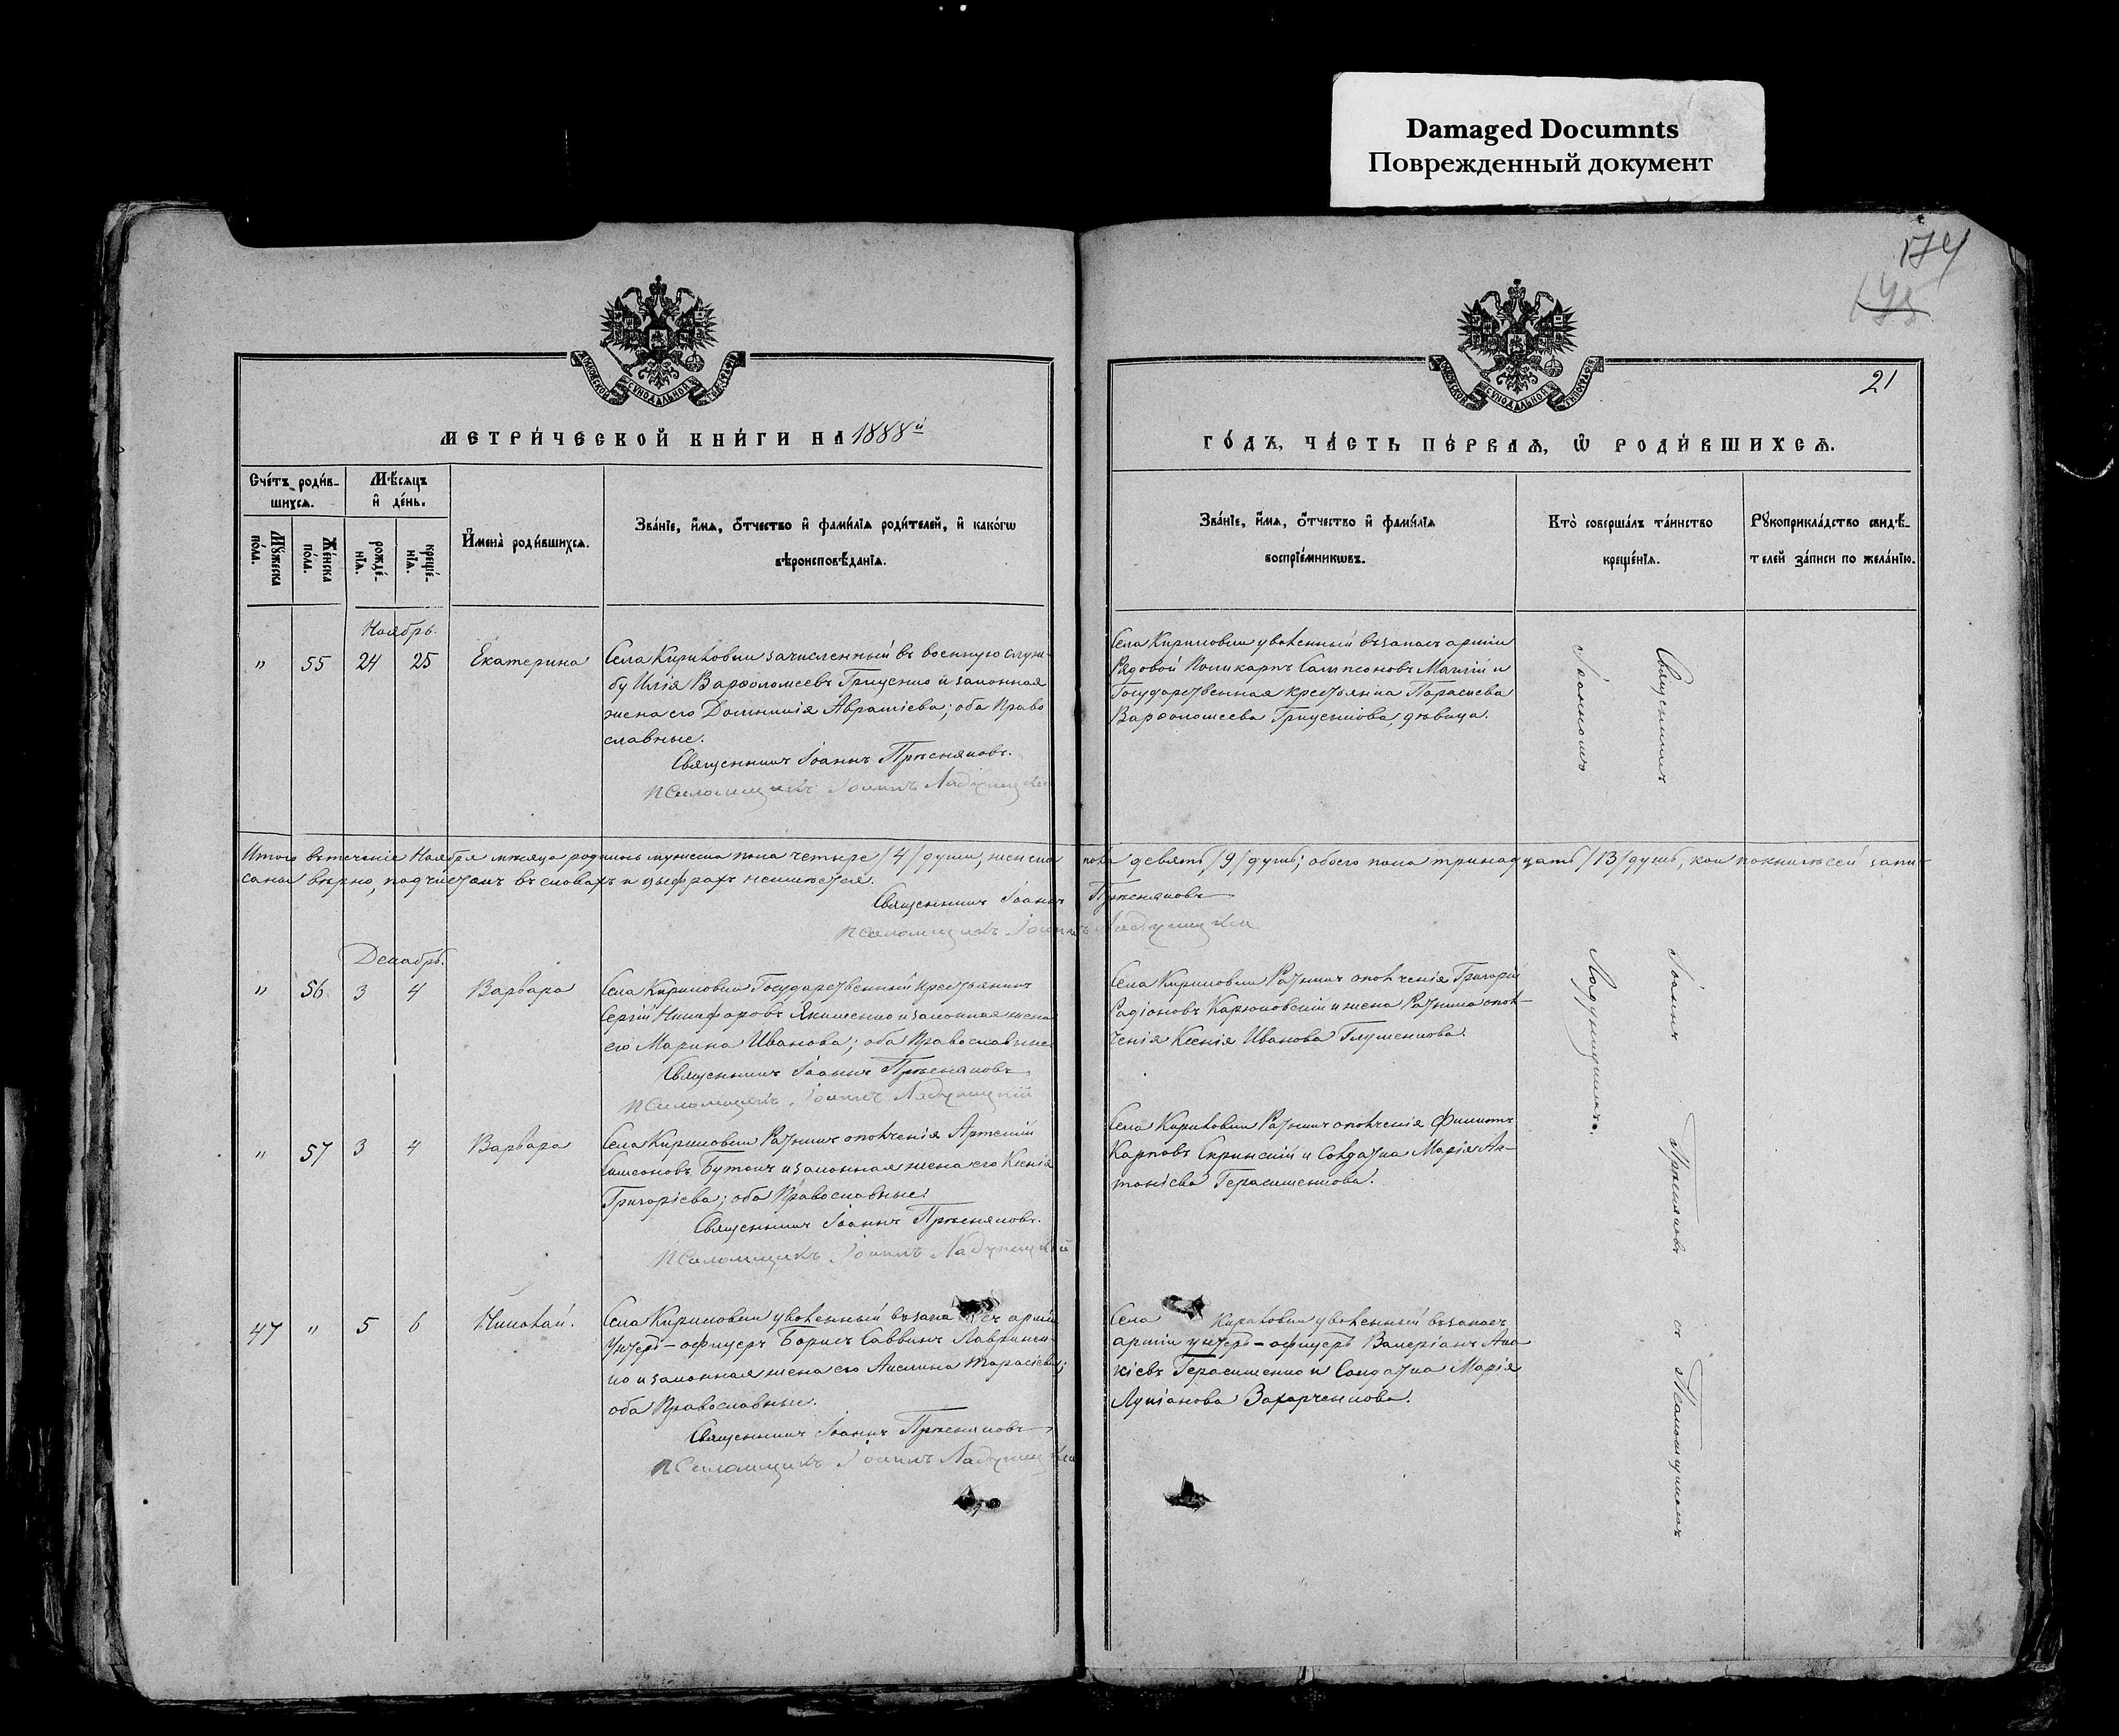 Damaged Documnts
Поврежденный документ
174
21
МОСКОВСКОЙ СѴНОДАЛЬНОЙ ТИПОГРАФІИ
МОСКОВСКОЙ СѴНОДАЛЬНОЙ ТИПОГРАФІИ
МЕТРИ́ЧЕСКОЙ КНИ́ГИ НА 1888й
ГО́ДЪ, ЧА́СТЬ ПЕ́РВАѦ, Ѡ҆ РОДИ́ВШИХСѦ.
Сче́тъ роди́в-
шихсѧ.
Мѣ́сяцъ
и҆ де́нь.
Мꙋ́жеска
по́ла.
Же́нска
по́ла.
рожде́-
нїѧ.
креще́-
нїѧ.
И҆мена̀ роди́вшихсѧ.
Зва́нїе, и҆́мѧ, ѻ҆́тчество и҆ фами́лїѧ роди́телей, и҆ како́гѡ
вѣроисповѣ́данїѧ.
Зва́нїе, и҆́мѧ, ѻ҆́тчество и҆ фами́лїѧ
воспрїе́мникѡвъ.
Кто̀ соверша́лъ та́инство
креще́нїѧ.
Рꙋкоприкла́дство свидѣ́-
телей за́писи по жела́нїю.
Ноябрь.
" 55 24 25 Екатерина
Села Кириловки зачисленный въ военную служ-
бу Илія Варѳоломеевъ Гриценко и законная
жена его Домникія Авраміева; оба Право
славные.
Священникъ Іоаннъ Прѣсняковъ.
Псаломщикъ Іоаннъ Ладухицкій
Села Кириловки уволенный въ запасъ арміи
Рядовой Поликарпъ Сампсоновъ Малій и
Государственная крестьянка Параскева
Варѳоломеева Гриценкова, дѣвица.
Итого въ теченіе Ноября мѣсяца родилось мужеска пола четыре /4/ души, женска пола девять /9/ душъ; обоего пола тринадцать /13/ душъ, кои по книгѣ сей запи-
саны вѣрно, подчистокъ въ словахъ и цыфрахъ не имѣется.
Священникъ Іоаннъ Прѣсняковъ
Псаломщикъ Іоаннъ Ладухицкій
Декабрь.
" 56 3 4 Варвара
Села Кириловки Государственный крестьянинъ
Сергій Никифоровъ Якименко и законная жена
его Марина Иванова; оба Православные
Священникъ Іоаннъ Прѣсняковъ
Псаломщикъ Іоаннъ Ладухицкій
Села Кириловки Ратникъ ополченія Григорій
Радіоновъ Карюковскій и жена Ратника опол-
ченія Ксенія Иванова Глушенкова.
" 57 3 4 Варвара
Села Кириловки Ратникъ ополченія Артемій
Самсоновъ Бутокъ и законная жена его Ксенія
Григоріева; оба Православные.
Священникъ Іоаннъ Прѣсняковъ.
Псаломщикъ Іоаннъ Ладухицкій
Села Кириловки Ратникъ ополченія Филиппъ
Карповъ Скринскій и Солдатка Марія Ан-
тоніева Герасименкова.
47 " 5 6 Николай.
Села Кириловки уволенный въ запасъ арміи
Унтеръ-офицеръ Борисъ Саввинъ Лавринен-
ко и законная жена его Акилина Тарасіева;
оба Православные.
Священникъ Іоаннъ Прѣсняковъ
Псаломщикъ Іоаннъ Ладухицкій
Села Кириловки уволенный въ запасъ
арміи унтеръ-офицеръ Валеріанъ Ана-
кіевъ Герасименко и Солдатка Марія
Лукіанова Захарченкова.
Священникъ Іоаннъ Прѣсняковъ съ Псаломщикомъ
Іоанномъ